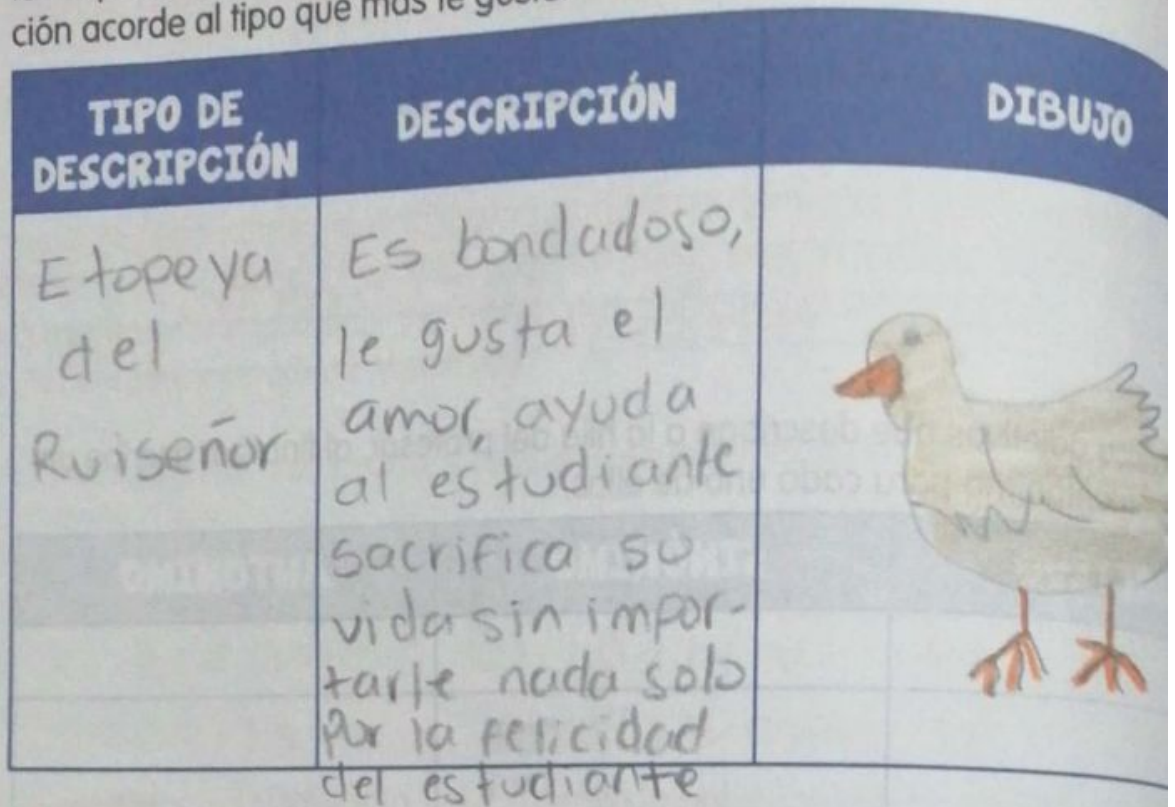 ción acorde al tipo que más le
TIPO DE
DESCRIPCIÓN
DESCRIPCIÓN
DIBUJO
Etopeya
del
Ruiseñor
Es bondadoso,
le gusta el
amor, ayuda
al estudiante
sacrifica su
vida sin impor-
tarle nada solo
por la felicidad
del estudiante